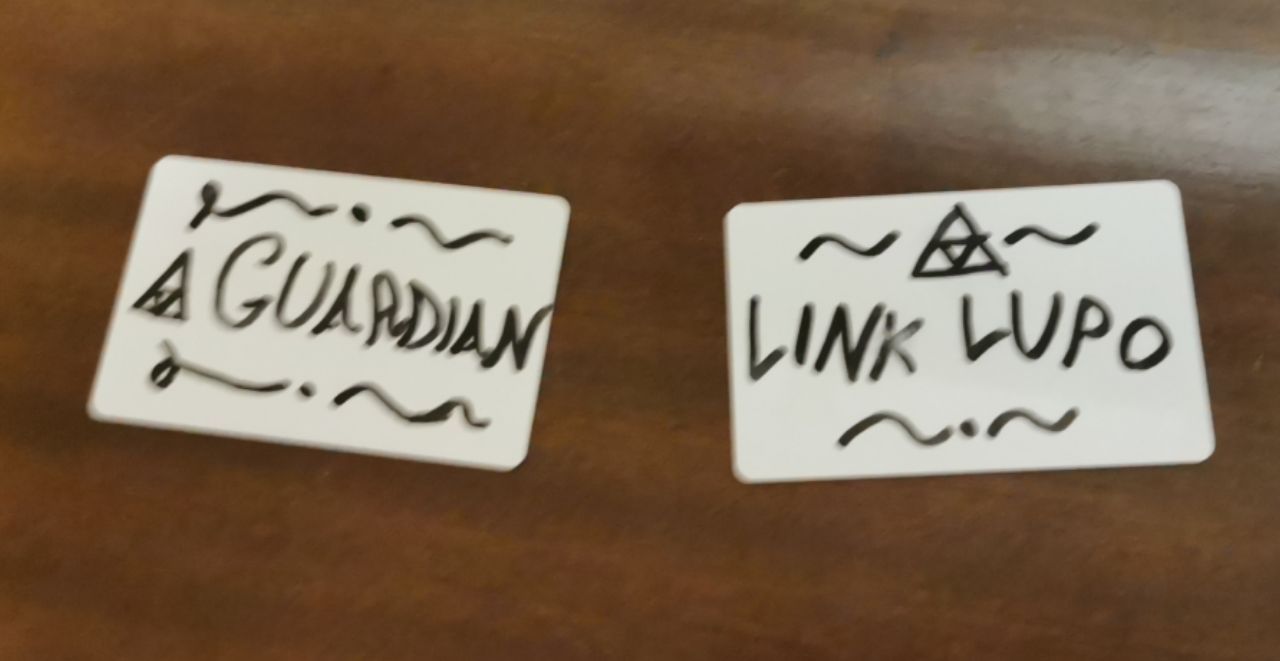 GUARDIAN
LINK LUPO